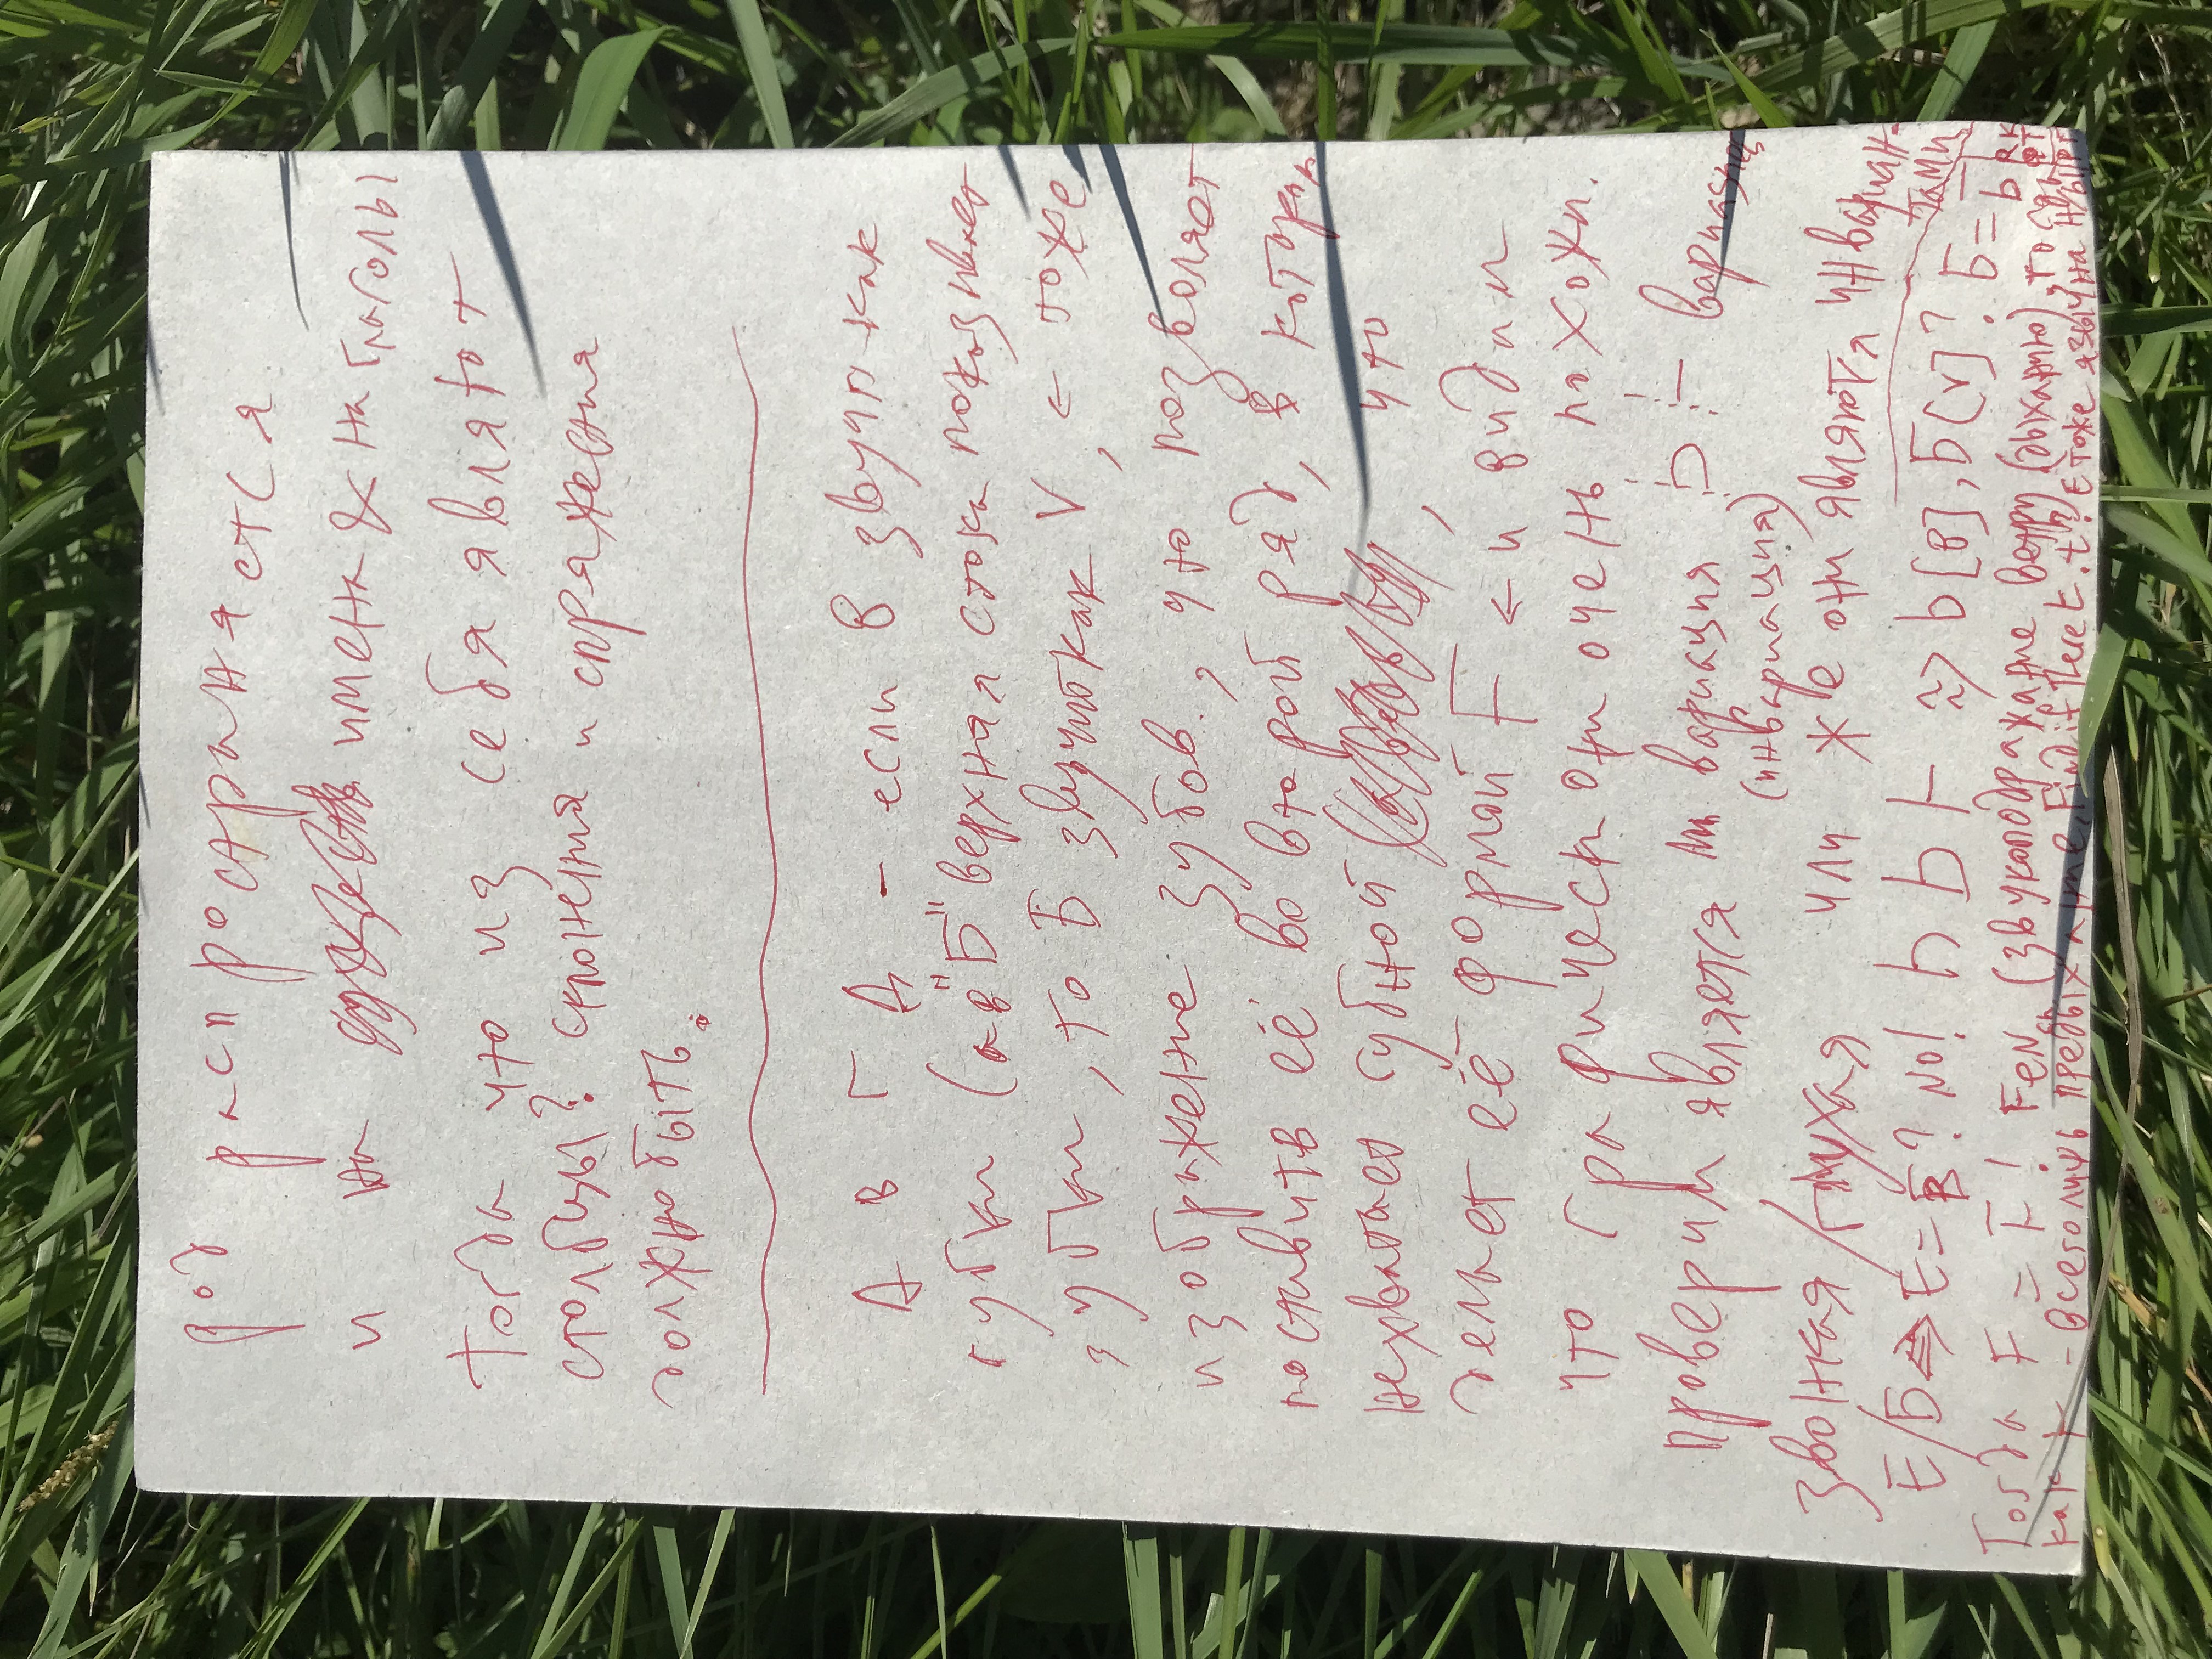 род распространяется
и на имена & на глаголы
Тогда что из себя являют
столбцы? склонения и спряжения
должно быть.
А В Г Д – если В звучит как
губки (а в "Б" верхняя показывает
зубки, то Б звучит как V, ← тоже
изображение зубов., что позволяет
поставить её во второй ряд, в котором
нехватает губной , что
делает её формой F ← и видим
что графически они очень похожи.
проверим является ли вариация
(инвариация)
звонкая/глухая или же они являются инвариан-
тами
E/Б ⇒ E= ? No! b[в], Б[v]? Б=
Тогда F = ! Fen (звукоподражание ветру (дыханию), тогда
как – всего лишь придыхание, Find if there t. E тоже язычна